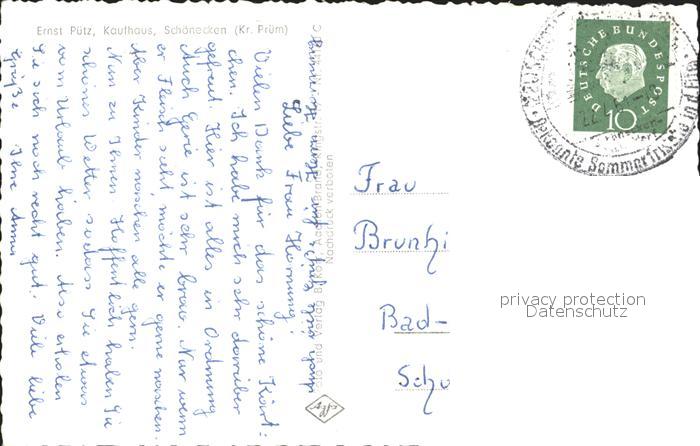 Ernst Pütz, Kaufhaus, Schönecken (Kr. Prüm)
Liebe Frau Hornung!
Vielen Dank für das schöne Kärt-
chen. Ich habe mich sehr darüber
gefreut. Hier ist alles in Ordnung
Auch Gerie ist sehr brav. Nur wenn
er Fleisch sieht, möchte er gerne naschen
Aber Kinder naschen alle gern.
Nun zu Ihnen. Hoffentlich haben Sie
schönes Wetter, sodass Sie etwas
vom Urlaub haben. Also erholen
Sie sich noch recht gut. Viele liebe
Grüße Ihre
Nachdruck verboten
Agfa
Frau
Brunhi
Bad-
Schu
DEUTSCHE BUNDESPOST
10
Bekannte Sommerfrische in d.
privacy protection
Datenschutz